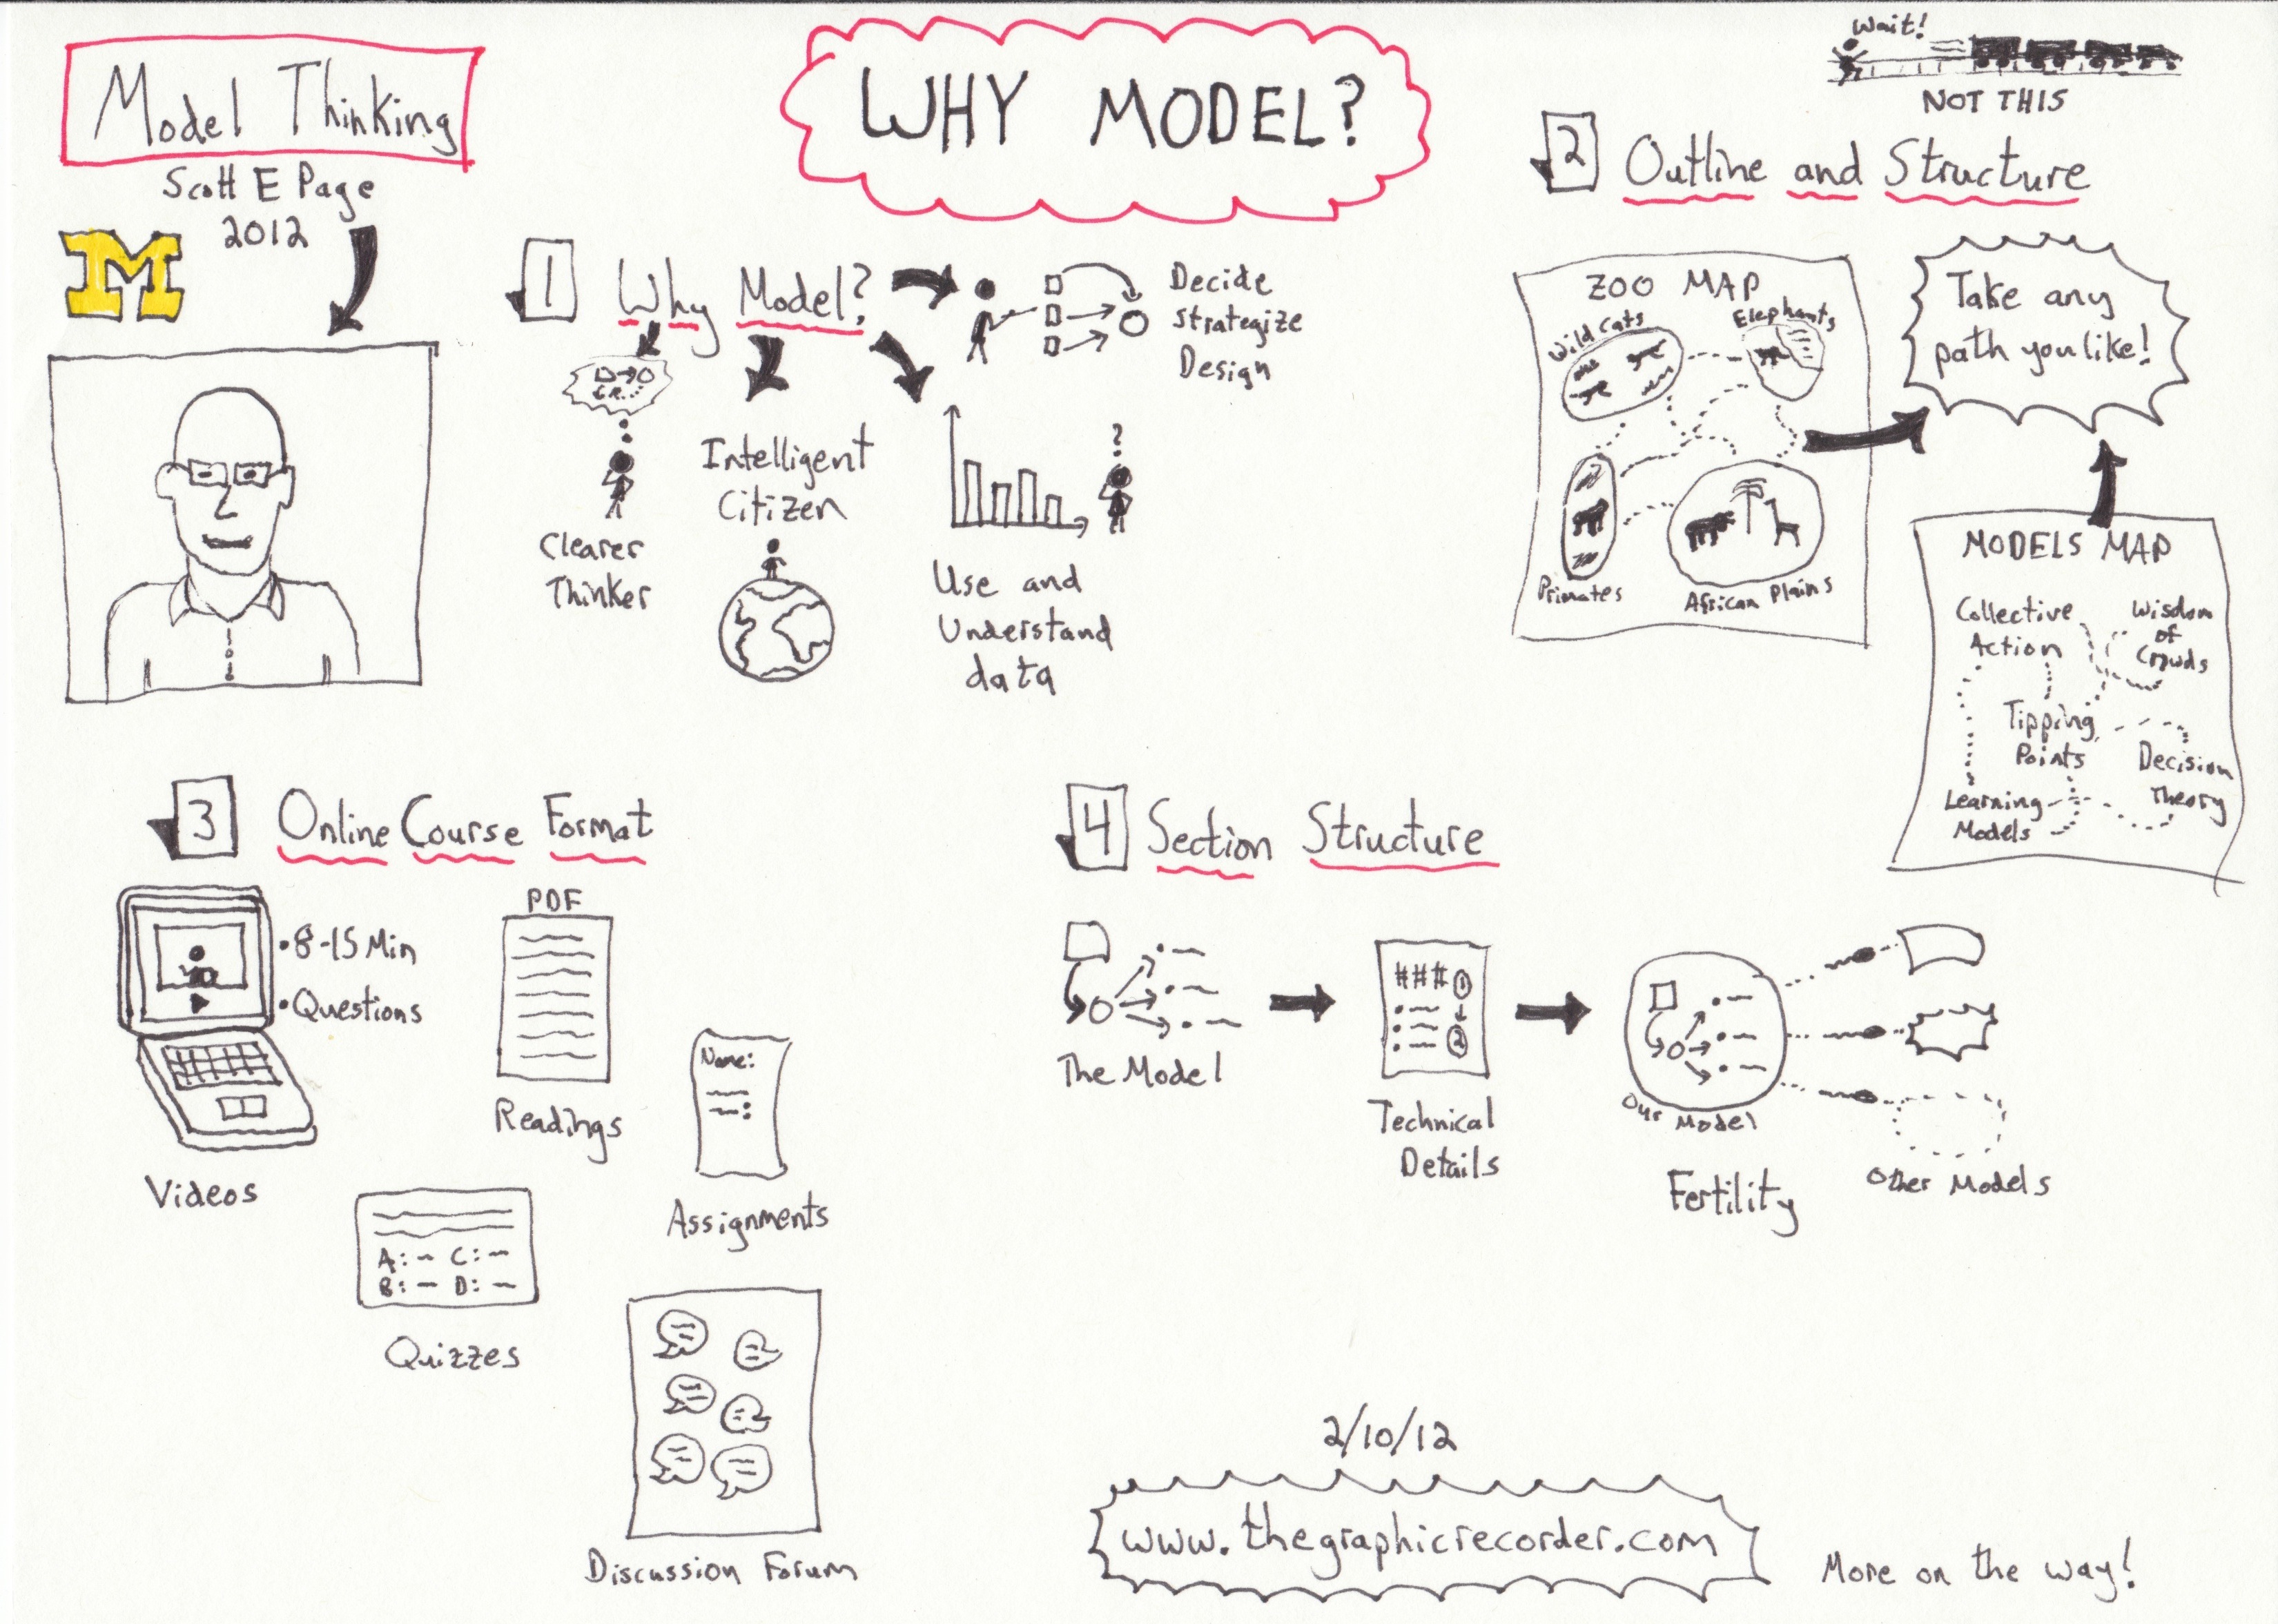 Model Thinking
Scott E Page
2012
M
WHY MODEL?
Wait!
NOT THIS
1
Why Model?
Decide
Strategize
Design
Clearer
Thinker
Intelligent
Citizen
?
Use and
Understand
data
2
Outline and Structure
ZOO MAP
Wild Cats
Elephants
Primates
African Plains
Take any
path you like!
MODELS MAP
Collective
Action
Wisdom
of
Crowds
Tipping
Points
Decision
Theory
Learning
Models
3
Online Course Format
•8-15 Min
•Questions
Videos
PDF
Readings
Name:
Assignments
A: C:
B: D:
Quizzes
Discussion Forum
4
Section Structure
The Model
###1
2
Technical
Details
Our Model
Fertility
Other Models
2/10/12
www.thegraphicrecorder.com
More on the way!